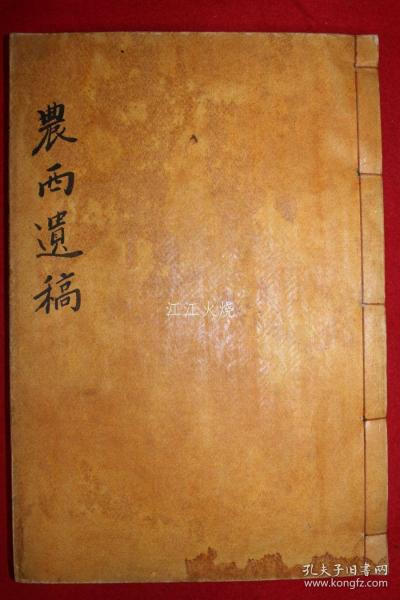 農西遺稿
江江火燒
孔夫子旧书网
https://www.kongfz.com